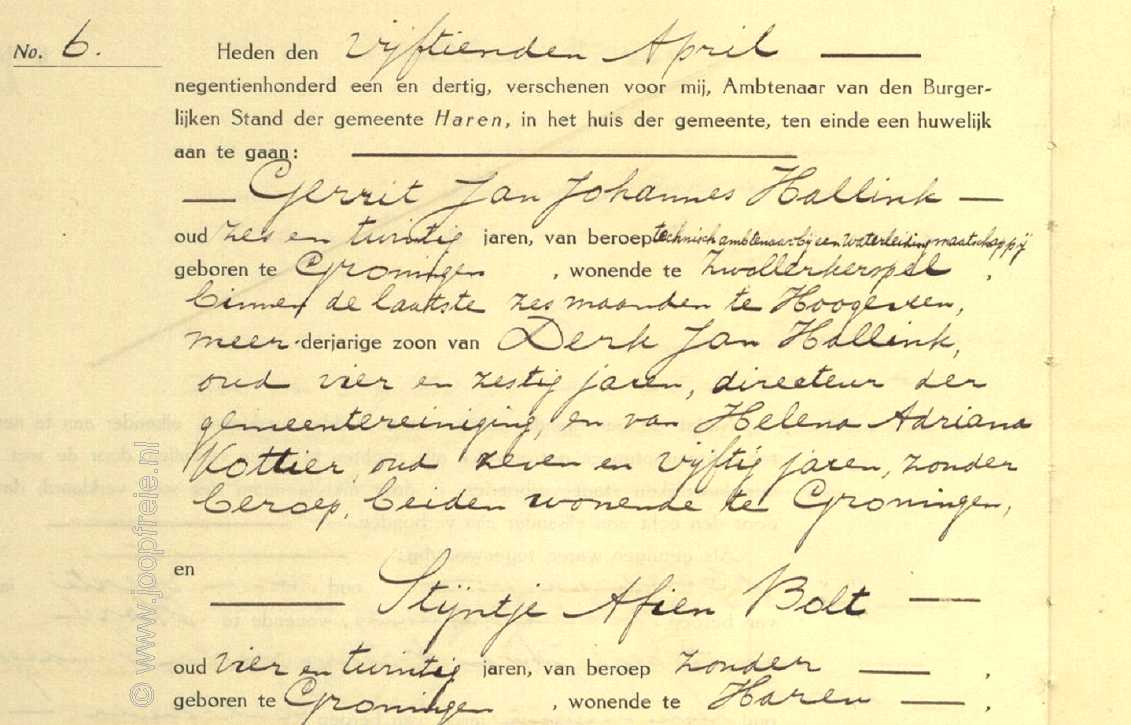 No. 6.
Heden den vijftienden April
negentienhonderd een en dertig, verschenen voor mij, Ambtenaar van den Burger-
lijken Stand der gemeente Haren, in het huis der gemeente, ten einde een huwelijk
aan te gaan:
Gerrit Jan Johannes Hallink
oud zes en twintig jaren, van beroep technisch ambtenaar bij een waterleidingmaatschappij
geboren te Groningen, wonende te Zwollerkerspel,
binnen de laatste zes maanden te Hoogeveen,
meer-derjarige zoon van Derk Jan Hallink,
oud vier en zestig jaren, directeur der
gemeentereiniging, en van Helena Adriana
Kottier, oud zeven en vijftig jaren, zonder
beroep, beiden wonende te Groningen,
en
Stijntje Afien Bolt
oud vier en twintig jaren, van beroep zonder,
geboren te Groningen, wonende te Haren.
© www.joopfreie.nl